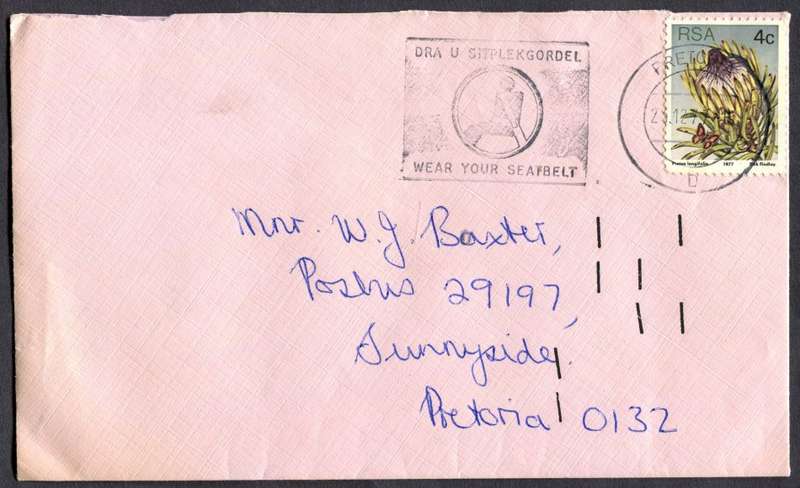 DRA U SITPLEKGORDEL
WEAR YOUR SEATBELT
PRETO
RSA 4c
Protea longifolia 1977 Dick Findlay
Mnr. W. J. Baxter,
Posbus 29197,
Sunnyside.
Pretoria 0132